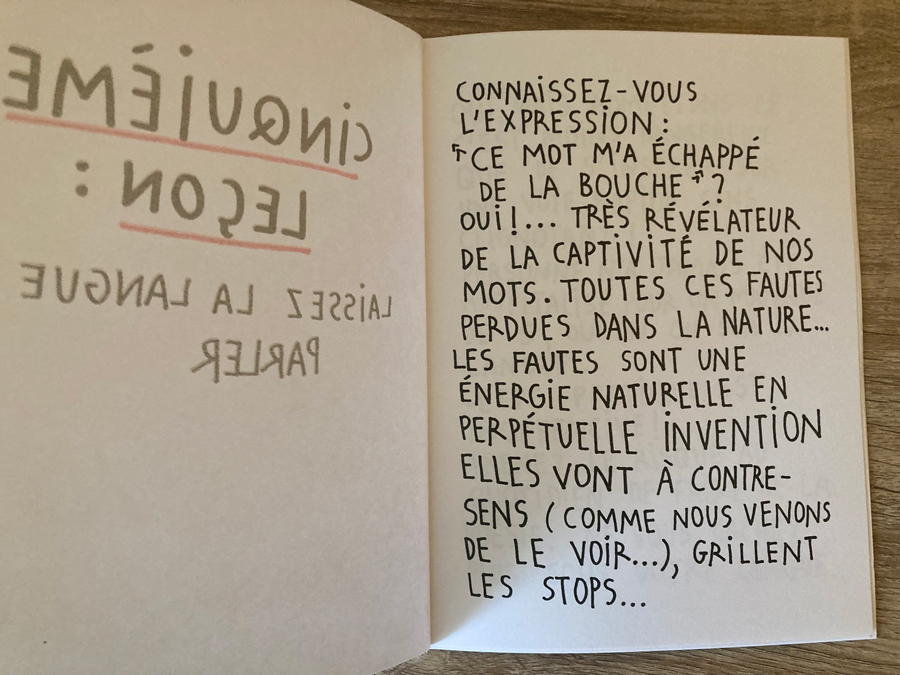 CINQUIÈME
LEÇON :
LAISSEZ LA LANGUE
PARLER
CONNAISSEZ-VOUS
L'EXPRESSION :
"CE MOT M'A ÉCHAPPÉ
DE LA BOUCHE" ?
OUI !... TRÈS RÉVÉLATEUR
DE LA CAPTIVITÉ DE NOS
MOTS. TOUTES CES FAUTES
PERDUES DANS LA NATURE...
LES FAUTES SONT UNE
ÉNERGIE NATURELLE EN
PERPÉTUELLE INVENTION
ELLES VONT À CONTRE-
SENS (COMME NOUS VENONS
DE LE VOIR...), GRILLENT
LES STOPS...